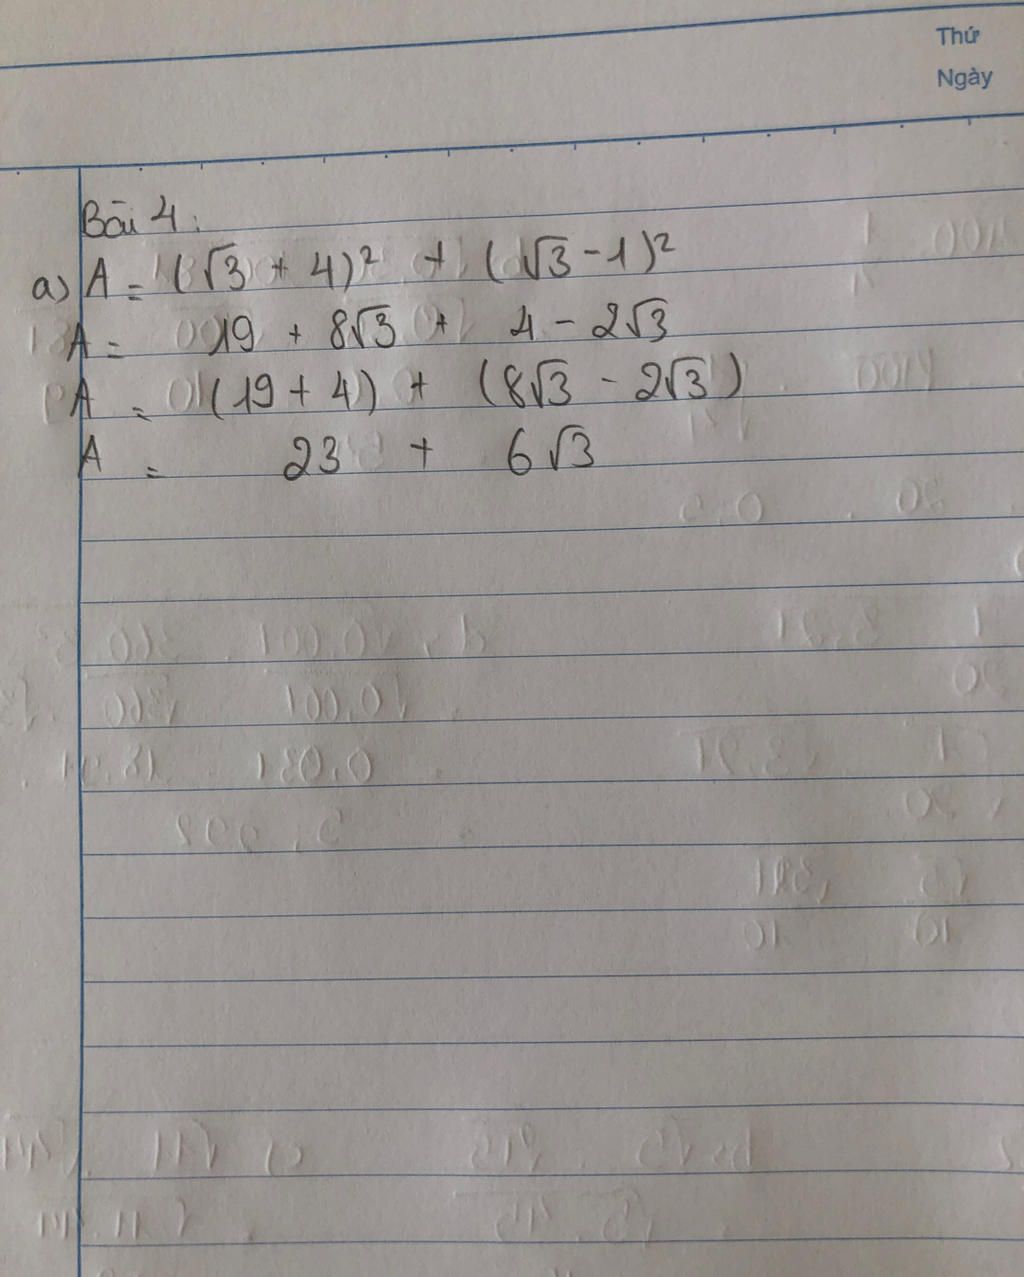 Thứ
Ngày
Bài 4:
a) A = (√3 + 4)² + (√3 - 1)²
A = 19 + 8√3 + 4 - 2√3
A = (19 + 4) + (8√3 - 2√3)
A = 23 + 6√3